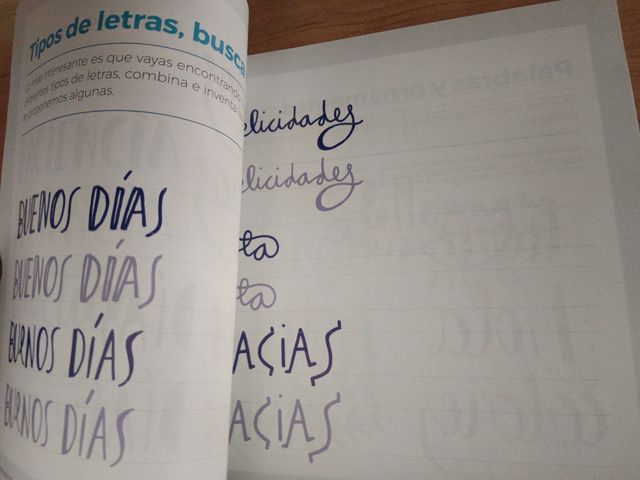 Tipos de letras, busca
más interesante es que vayas encontrando
diferentes tipos de letras, combina e inventa
te proponemos algunas.
BUENOS DÍAS
BUENOS DÍAS
BUENOS DÍAS
BUENOS DÍAS
elicidades
elicidades
ta
ta
ACIAS
ACIAS